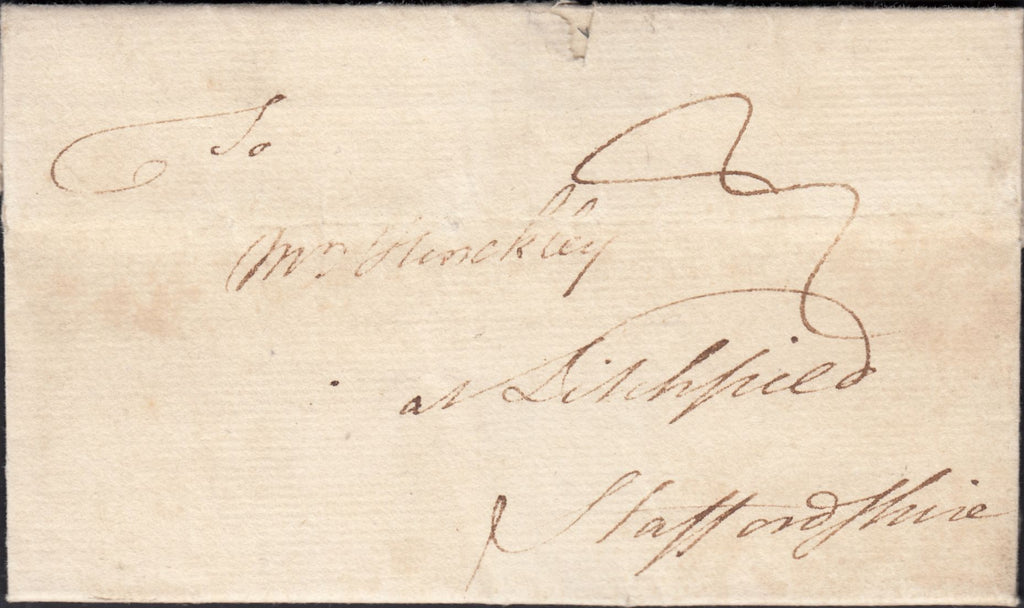 To
Mr Hinckley
at Litchfield
Staffordshire